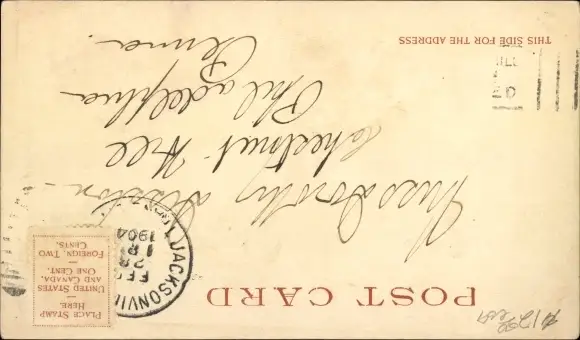 POST CARD
PLACE STAMP
HERE.
UNITED STATES
AND CANADA,
ONE CENT.
FOREIGN, TWO
CENTS.
JACKSONVIL
FEB
28
1904
Miss Dorothy
Chestnut Hill
Philadelphia
Penna.
THIS SIDE FOR THE ADDRESS